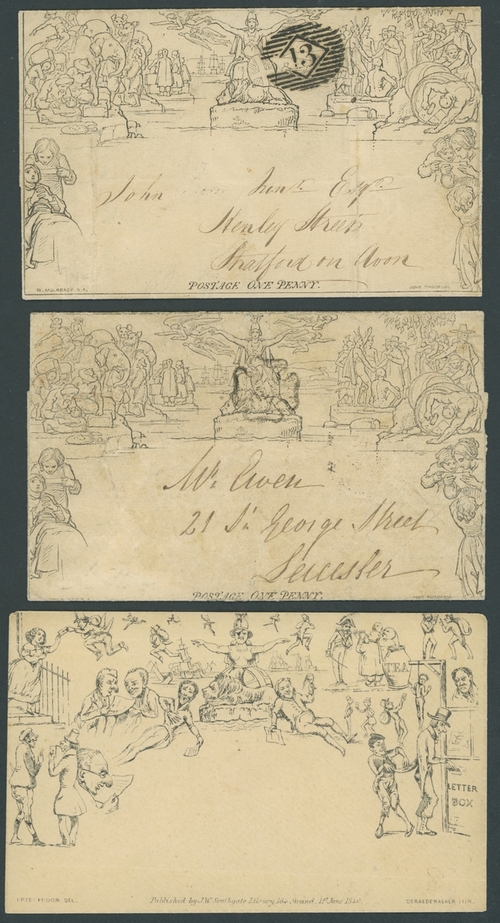 13
John Hunt Esqre
Henley Street
Stratford on Avon
POSTAGE ONE PENNY.
W. MULREADY R.A.
JOHN THOMPSON
Mr. Ewen
21 St. George Street
Leicester
POSTAGE ONE PENNY.
JOHN THOMPSON
TEA
LETTER
BOX
DEL.
Published by J.W. Southgate Library, 164 Strand, 1st June 1840
LITH.